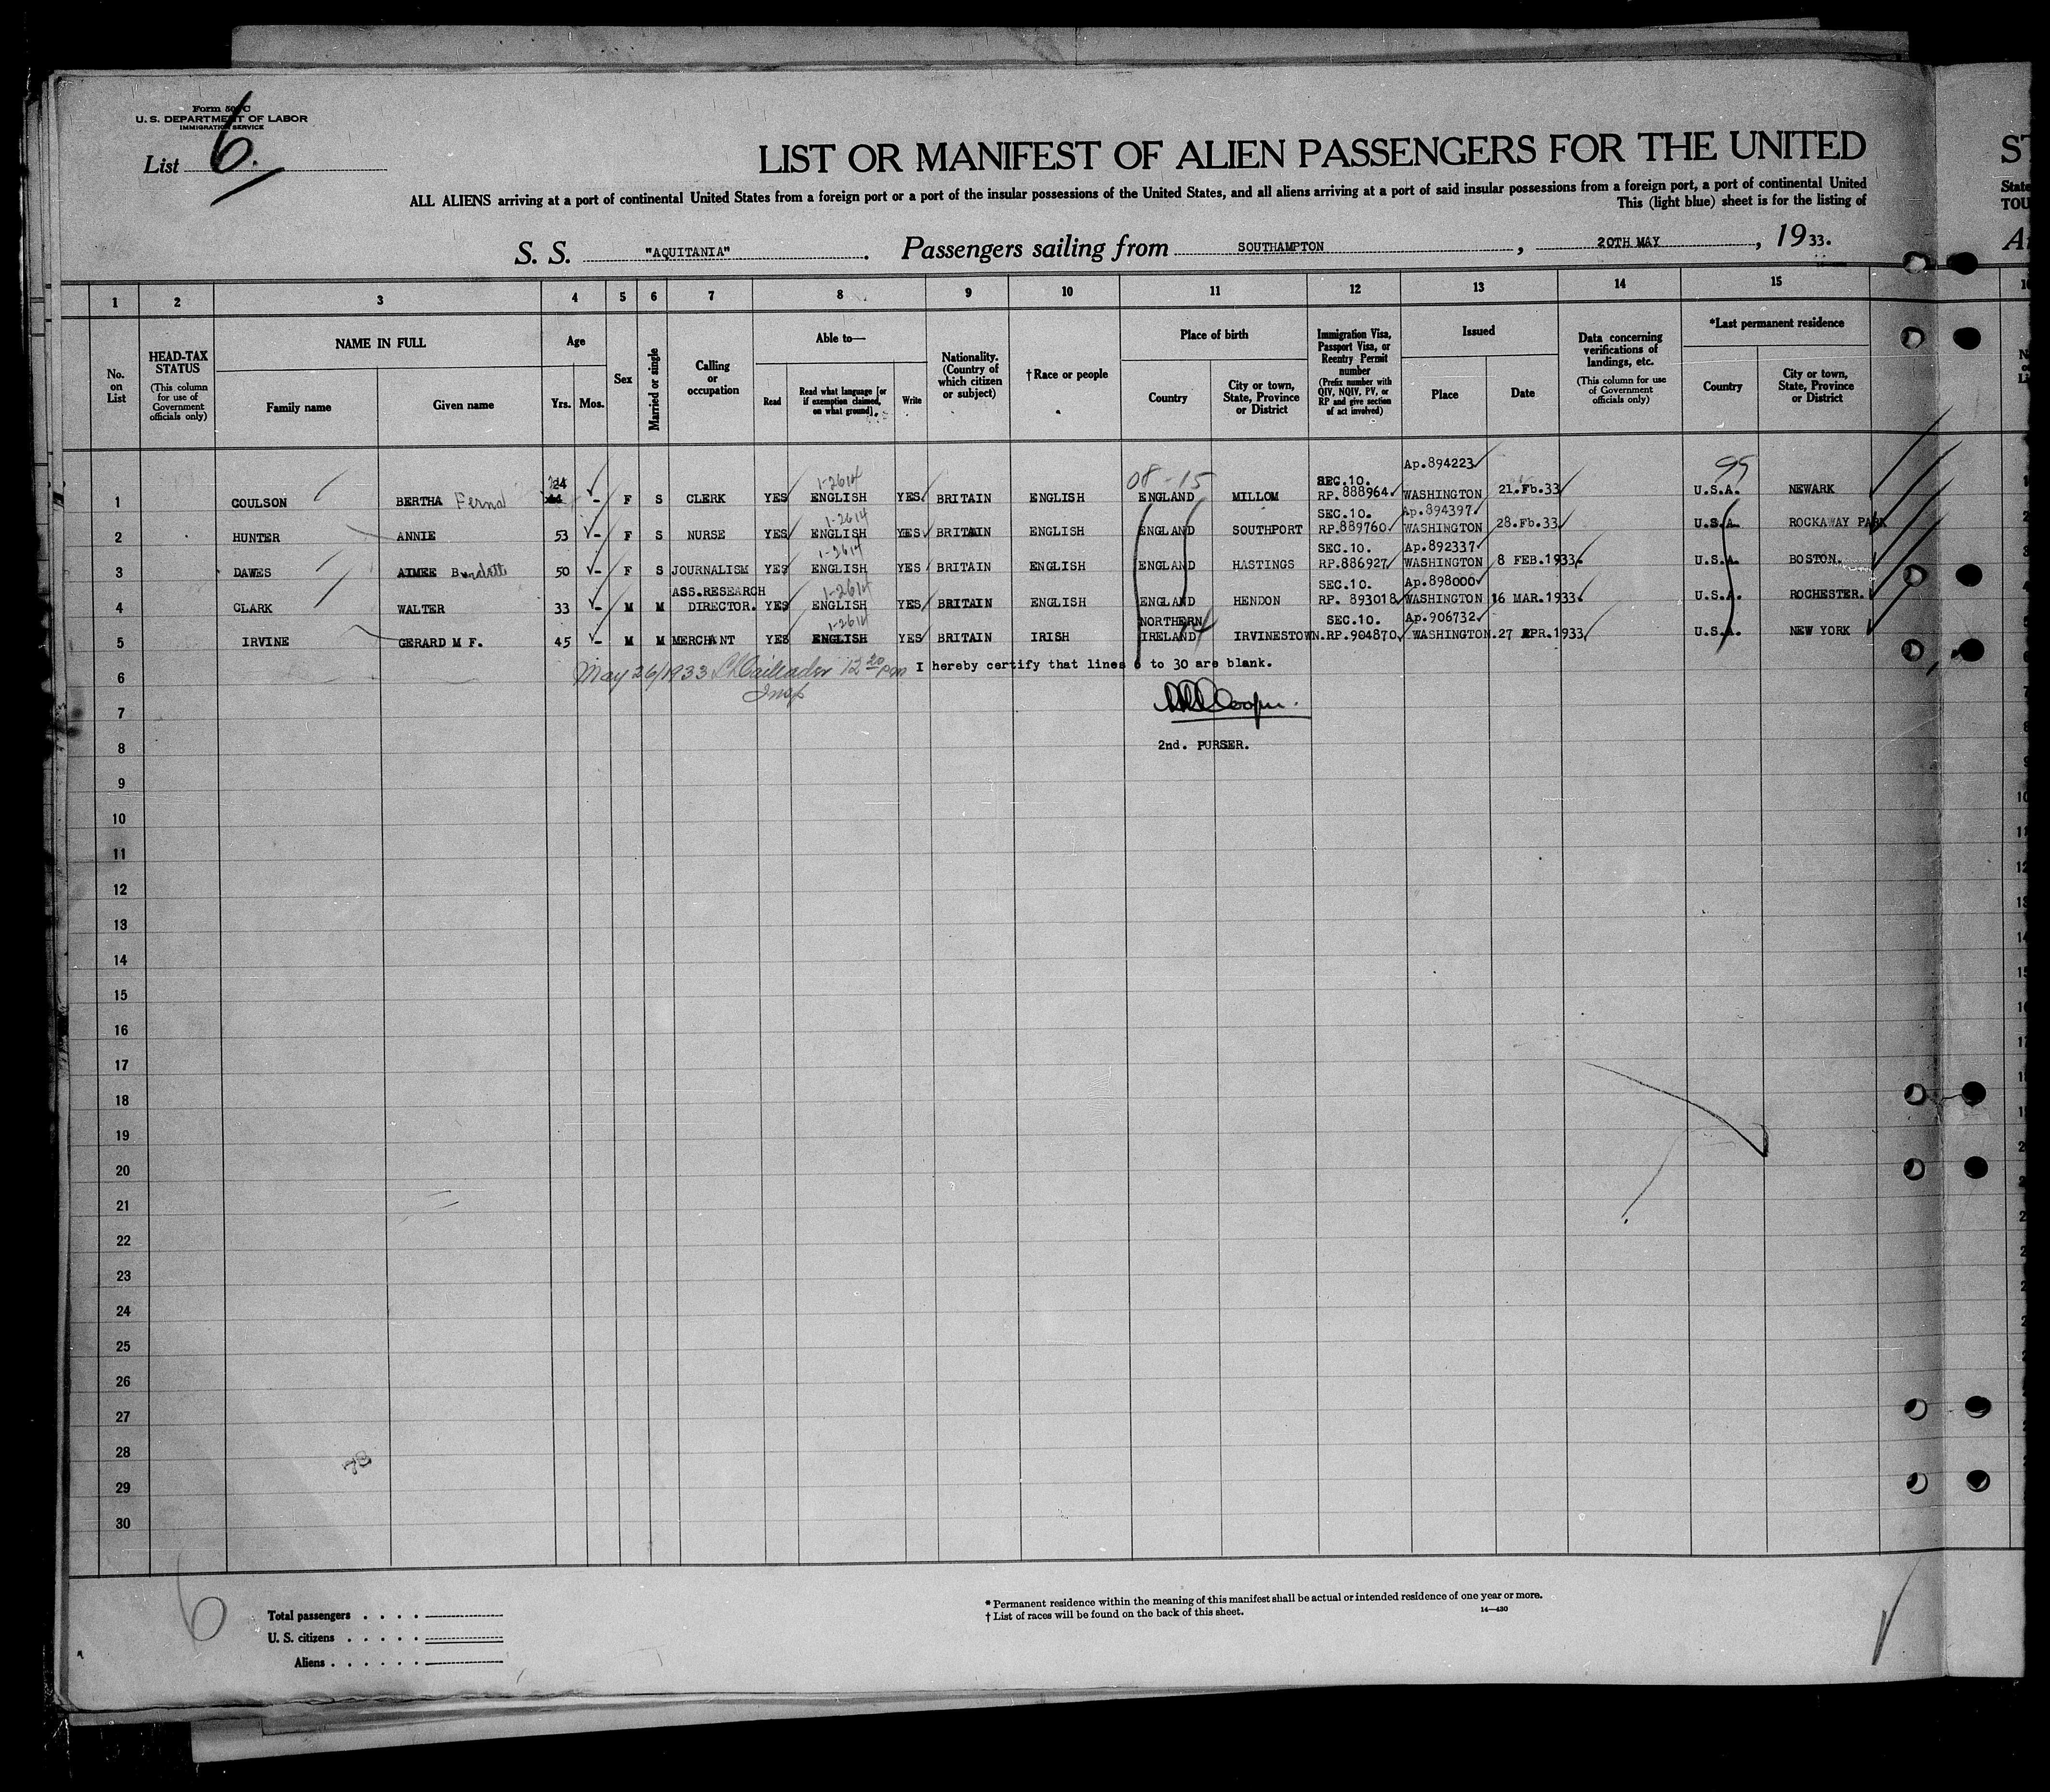 Form 500 C
U. S. DEPARTMENT OF LABOR
IMMIGRATION SERVICE
List 6.
LIST OR MANIFEST OF ALIEN PASSENGERS FOR THE UNITED
ALL ALIENS arriving at a port of continental United States from a foreign port or a port of the insular possessions of the United States, and all aliens arriving at a port of said insular possessions from a foreign port, a port of continental United
This (light blue) sheet is for the listing of
S. S. "AQUITANIA". Passengers sailing from SOUTHAMPTON, 20TH MAY, 1933.
1 2 3 4 5 6 7 8 9 10 11 12 13 14 15
No. on List
HEAD-TAX STATUS
(This column for use of Government officials only)
NAME IN FULL
Family name
Given name
Age
Yrs. Mos.
Sex
Married or single
Calling or occupation
Able to—
Read
Read what language [or if exemption claimed, on what ground]
Write
Nationality. (Country of which citizen or subject)
†Race or people
Place of birth
Country
City or town, State, Province or District
Immigration Visa, Passport Visa, or Reentry Permit number
(Prefix number with QIV, NQIV, PV, or RP and give section of act involved)
Issued
Place
Date
Data concerning verifications of landings, etc.
(This column for use of Government officials only)
*Last permanent residence
Country
City or town, State, Province or District
24 1-2614 08-15 SEC.10. Ap.894223 99
1 COULSON BERTHA 44 - F S CLERK YES ENGLISH YES BRITAIN ENGLISH ENGLAND MILLOM RP.888964 WASHINGTON 21.Fb.33 U.S.A. NEWARK
1-2614 SEC.10. Ap.894397
2 HUNTER ANNIE 53 - F S NURSE YES ENGLISH YES BRITAIN ENGLISH ENGLAND SOUTHPORT RP.889760 WASHINGTON 28.Fb.33 U.S.A. ROCKAWAY PARK
1-2614 SEC.10. Ap.892337
3 DAWES AIMEE 50 - F S JOURNALISM YES ENGLISH YES BRITAIN ENGLISH ENGLAND HASTINGS RP.886927 WASHINGTON 8 FEB.1933. U.S.A. BOSTON.
ASS.RESEARCH 1-2614 SEC.10. Ap.898000
4 CLARK WALTER 33 - M M DIRECTOR. YES ENGLISH YES BRITAIN ENGLISH ENGLAND HENDON RP. 893018 WASHINGTON 16 MAR.1933. U.S.A. ROCHESTER.
1-2614 NORTHERN SEC.10. Ap.906732
5 IRVINE GERARD M F. 45 - M M MERCHANT YES ENGLISH YES BRITAIN IRISH IRELAND IRVINESTOWN. RP.904870 WASHINGTON. 27 APR.1933 U.S.A. NEW YORK
6 May 26/1933 12 20 pm I hereby certify that lines 6 to 30 are blank.
Insp
7
8 2nd. PURSER.
9
10
11
12
13
14
15
16
17
18
19
20
21
22
23
24
25
26
27
28
29
30
6
Total passengers
U. S. citizens
Aliens
* Permanent residence within the meaning of this manifest shall be actual or intended residence of one year or more.
† List of races will be found on the back of this sheet.
14—430